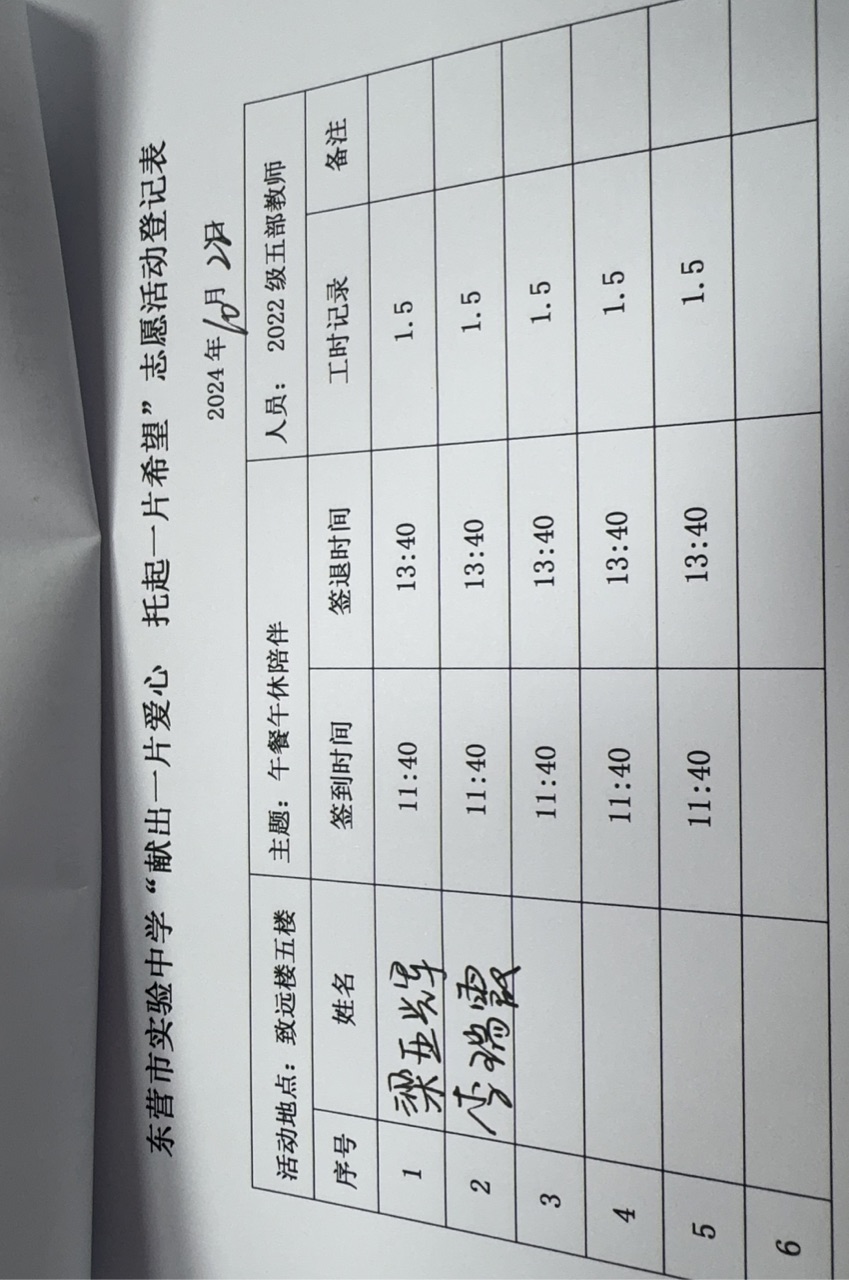 东营市实验中学“献出一片爱心 托起一片希望”志愿活动登记表
2024 年 10 月 2 日
活动地点：致远楼五楼 主题：午餐午休陪伴 人员： 2022 级五部教师
序号 姓名 签到时间 签退时间 工时记录 备注
1 梁亚辉 11:40 13:40 1.5
2 李瑞霞 11:40 13:40 1.5
3 11:40 13:40 1.5
4 11:40 13:40 1.5
5 11:40 13:40 1.5
6